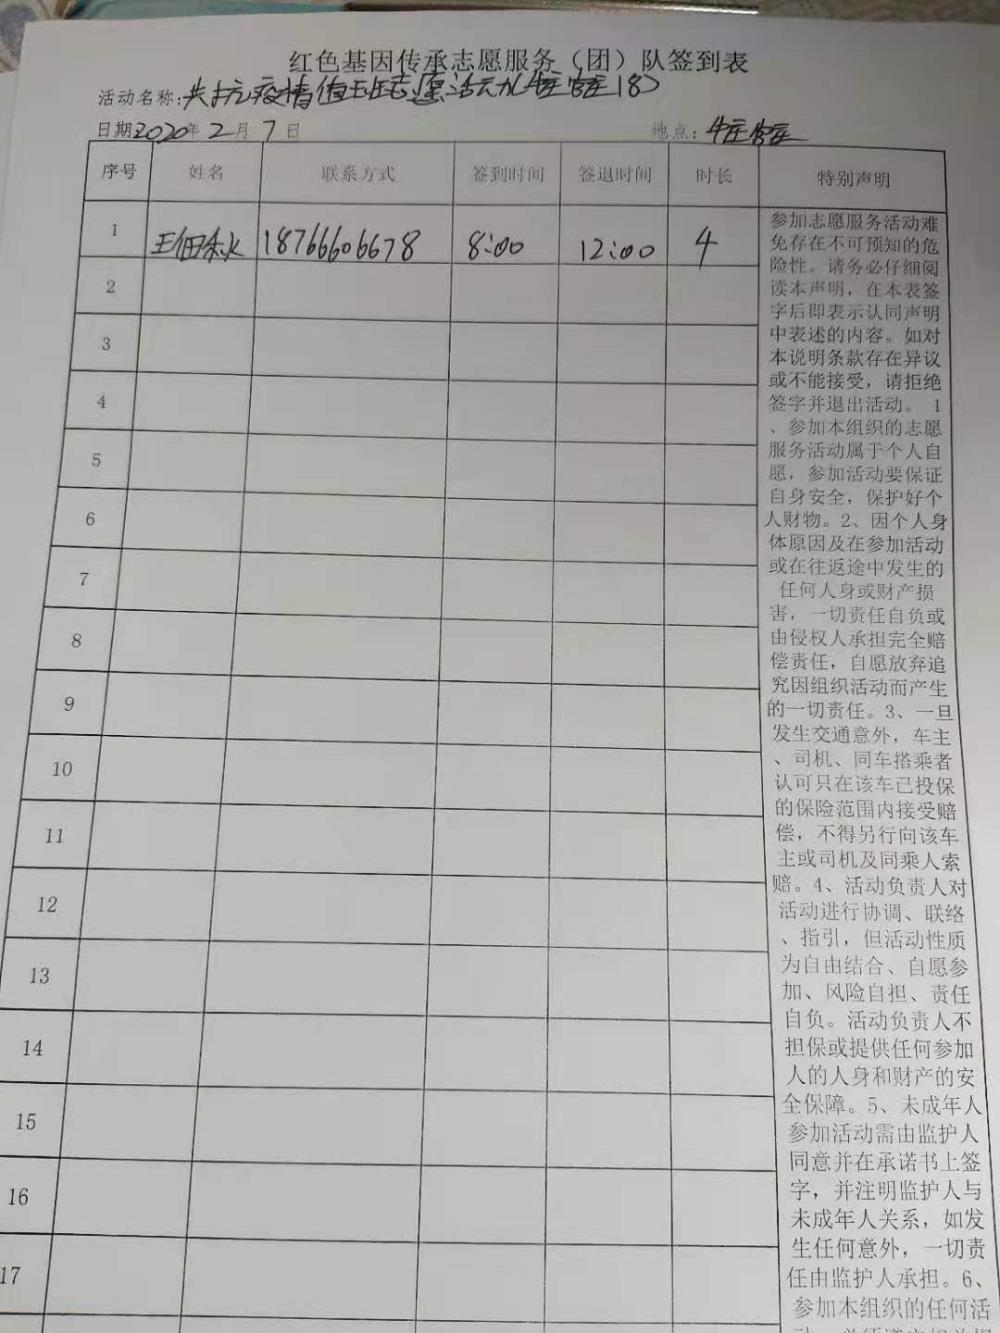 红色基因传承志愿服务（团）队签到表
活动名称:共抗疫情值班志愿活动
日期2020年2月7日 地点:
序号 姓名 联系方式 签到时间 签退时间 时长 特别声明
1 18766606678 8:00 12:00 4
2
3
4
5
6
7
8
9
10
11
12
13
14
15
16
17
参加志愿服务活动难
免存在不可预知的危
险性。请务必仔细阅
读本声明，在本表签
字后即表示认同声明
中表述的内容。如对
本说明条款存在异议
或不能接受，请拒绝
签字并退出活动。 1
、参加本组织的志愿
服务活动属于个人自
愿，参加活动要保证
自身安全，保护好个
人财物。2、因个人身
体原因及在参加活动
或在往返途中发生的
任何人身或财产损
害，一切责任自负或
由侵权人承担完全赔
偿责任，自愿放弃追
究因组织活动而产生
的一切责任。3、一旦
发生交通意外，车主
、司机、同车搭乘者
认可只在该车已投保
的保险范围内接受赔
偿，不得另行向该车
主或司机及同乘人索
赔。4、活动负责人对
活动进行协调、联络
、指引，但活动性质
为自由结合、自愿参
加、风险自担、责任
自负。活动负责人不
担保或提供任何参加
人的人身和财产的安
全保障。5、未成年人
参加活动需由监护人
同意并在承诺书上签
字，并注明监护人与
未成年人关系，如发
生任何意外，一切责
任由监护人承担。6、
参加本组织的任何活